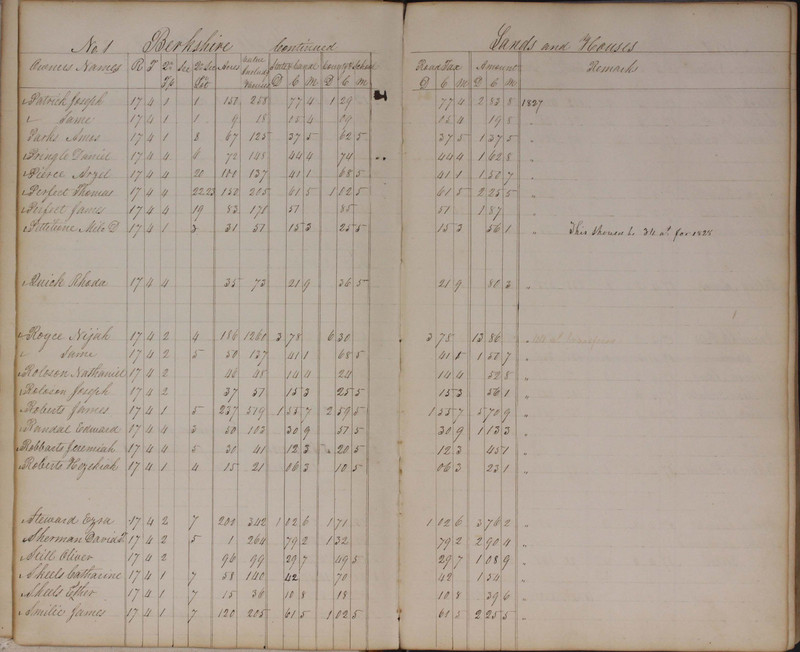 No. 1 Berkshire Continued Lands and Houses
Owners Names R T Qr Sec Acres Road Tax Amount Remarks
Patrick Joseph 17 4 1 1 150 258 77 4 1 29 77 4 2 83 8 1827
Same 17 4 1 1 9 18 05 4 09 05 4 19 8 "
Parks Amos 17 4 1 8 67 125 37 5 62 5 37 5 1 37 5 "
Pringle Daniel 17 4 4 6 72 148 44 4 74 44 4 1 62 8 "
Pierce 17 4 4 20 100 137 41 1 68 5 41 1 1 50 7 "
Perfect Thomas 17 4 4 22.23 150 205 61 5 1 02 5 61 5 2 25 5 "
Perfect James 17 4 4 19 83 170 51 85 51 1 87 "
Milo D 17 4 1 3 31 51 15 3 25 5 15 3 56 1 " for 1828
Quick Rhoda 17 4 4 35 73 21 9 36 5 21 9 80 3 "
Royce Nijah 17 4 2 4 186 1260 3 78 6 30 3 78 13 86 "
Same 17 4 2 5 50 137 41 1 68 5 41 1 50 7 "
Roloson Nathaniel 17 4 2 46 48 14 4 24 14 4 52 8 "
Roloson Joseph 17 4 2 37 51 15 3 25 5 15 3 56 1 "
Roberts James 17 4 1 5 237 519 1 55 7 2 59 5 1 55 7 5 70 9 "
Randal Edward 17 4 4 3 50 103 30 9 51 5 30 9 1 13 3 "
Robbarts Jeremiah 17 4 4 5 30 41 12 3 20 5 12 3 45 1 "
Roberts Hezekiah 17 4 1 4 15 21 06 3 10 5 06 3 23 1 "
Steward Ezra 17 4 2 7 200 342 1 02 6 1 71 1 02 6 3 76 2 "
Sherman David 17 4 2 5 1 264 79 2 1 32 79 2 2 90 4 "
Still Oliver 17 4 2 96 99 29 7 49 5 29 7 1 08 9 "
Skeels Catharine 17 4 1 7 58 140 42 70 42 1 54 "
Skeels 17 4 1 7 15 36 10 8 18 10 8 39 6 "
James 17 4 1 7 120 205 61 5 1 02 5 61 5 2 25 5 "